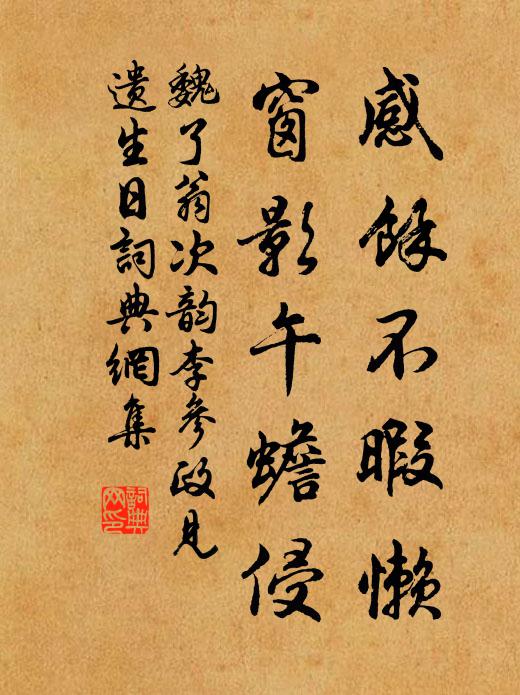 感餘不暇懒
窗影午蟾侵
魏了翁次韵李參政見
遗生日詞典網集
詞典
网印